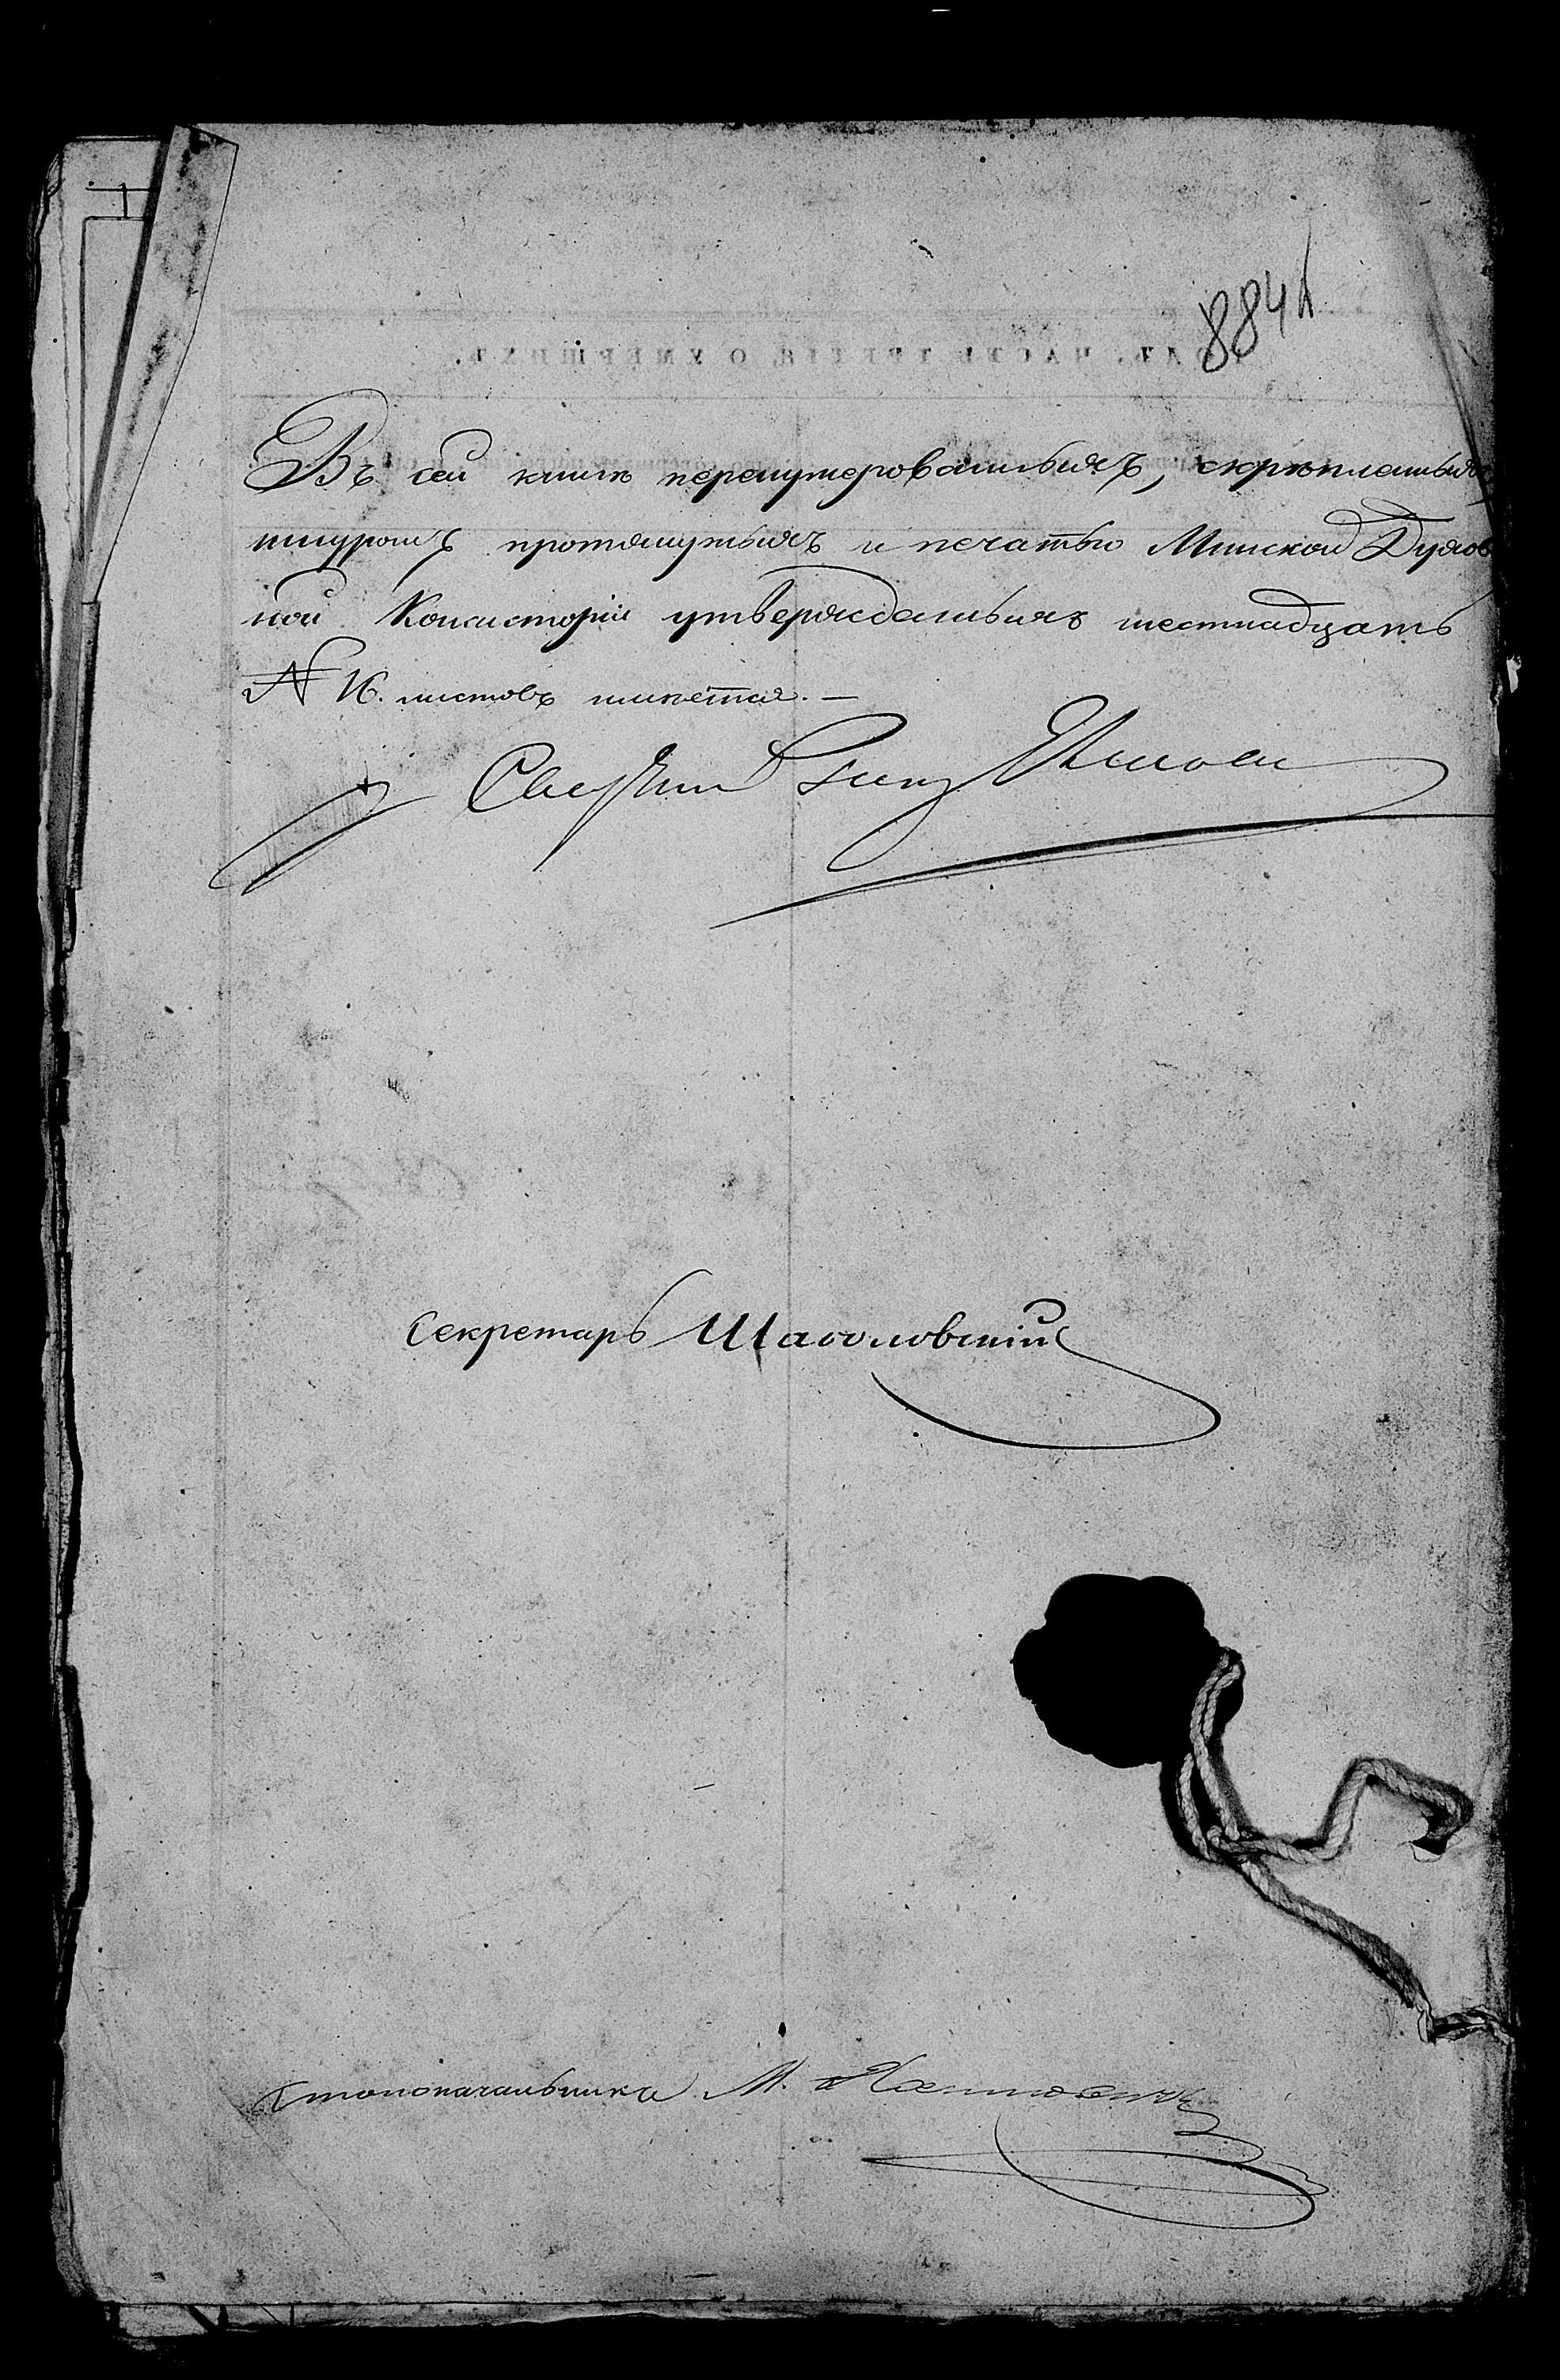 884
Въ сей книгѣ перенумерованныхъ, скрѣпленныхъ
шнуромъ протянутыхъ и печатью Минской Духов
ной Консисторіи утвержденныхъ шестнадцать
№ 16. листовъ имѣется. —
Секретарь
Столоначальника М.